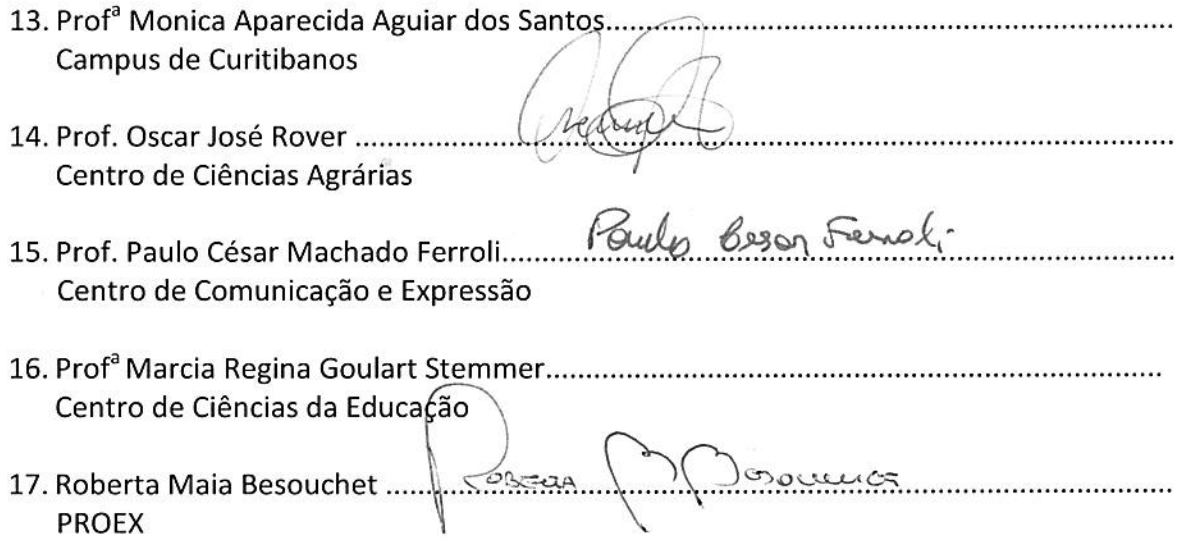 13. Profª Monica Aparecida Aguiar dos Santos......................................................................
Campus de Curitibanos
14. Prof. Oscar José Rover ......................................................................
Centro de Ciências Agrárias
Paulo Cesar Ferroli
15. Prof. Paulo César Machado Ferroli......................................................................
Centro de Comunicação e Expressão
16. Profª Marcia Regina Goulart Stemmer......................................................................
Centro de Ciências da Educação
17. Roberta Maia Besouchet ...................................................................... Roberta M Besouchet
PROEX